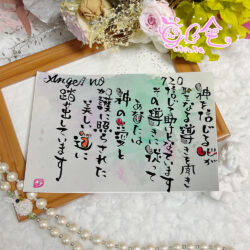 Angel NO
720
神を信じる心が
聖なる導きを聞き
信じ助となっています
その導きに従って
あなたは
神の愛と
加護に照らされた
美しい道に
踏み出しています